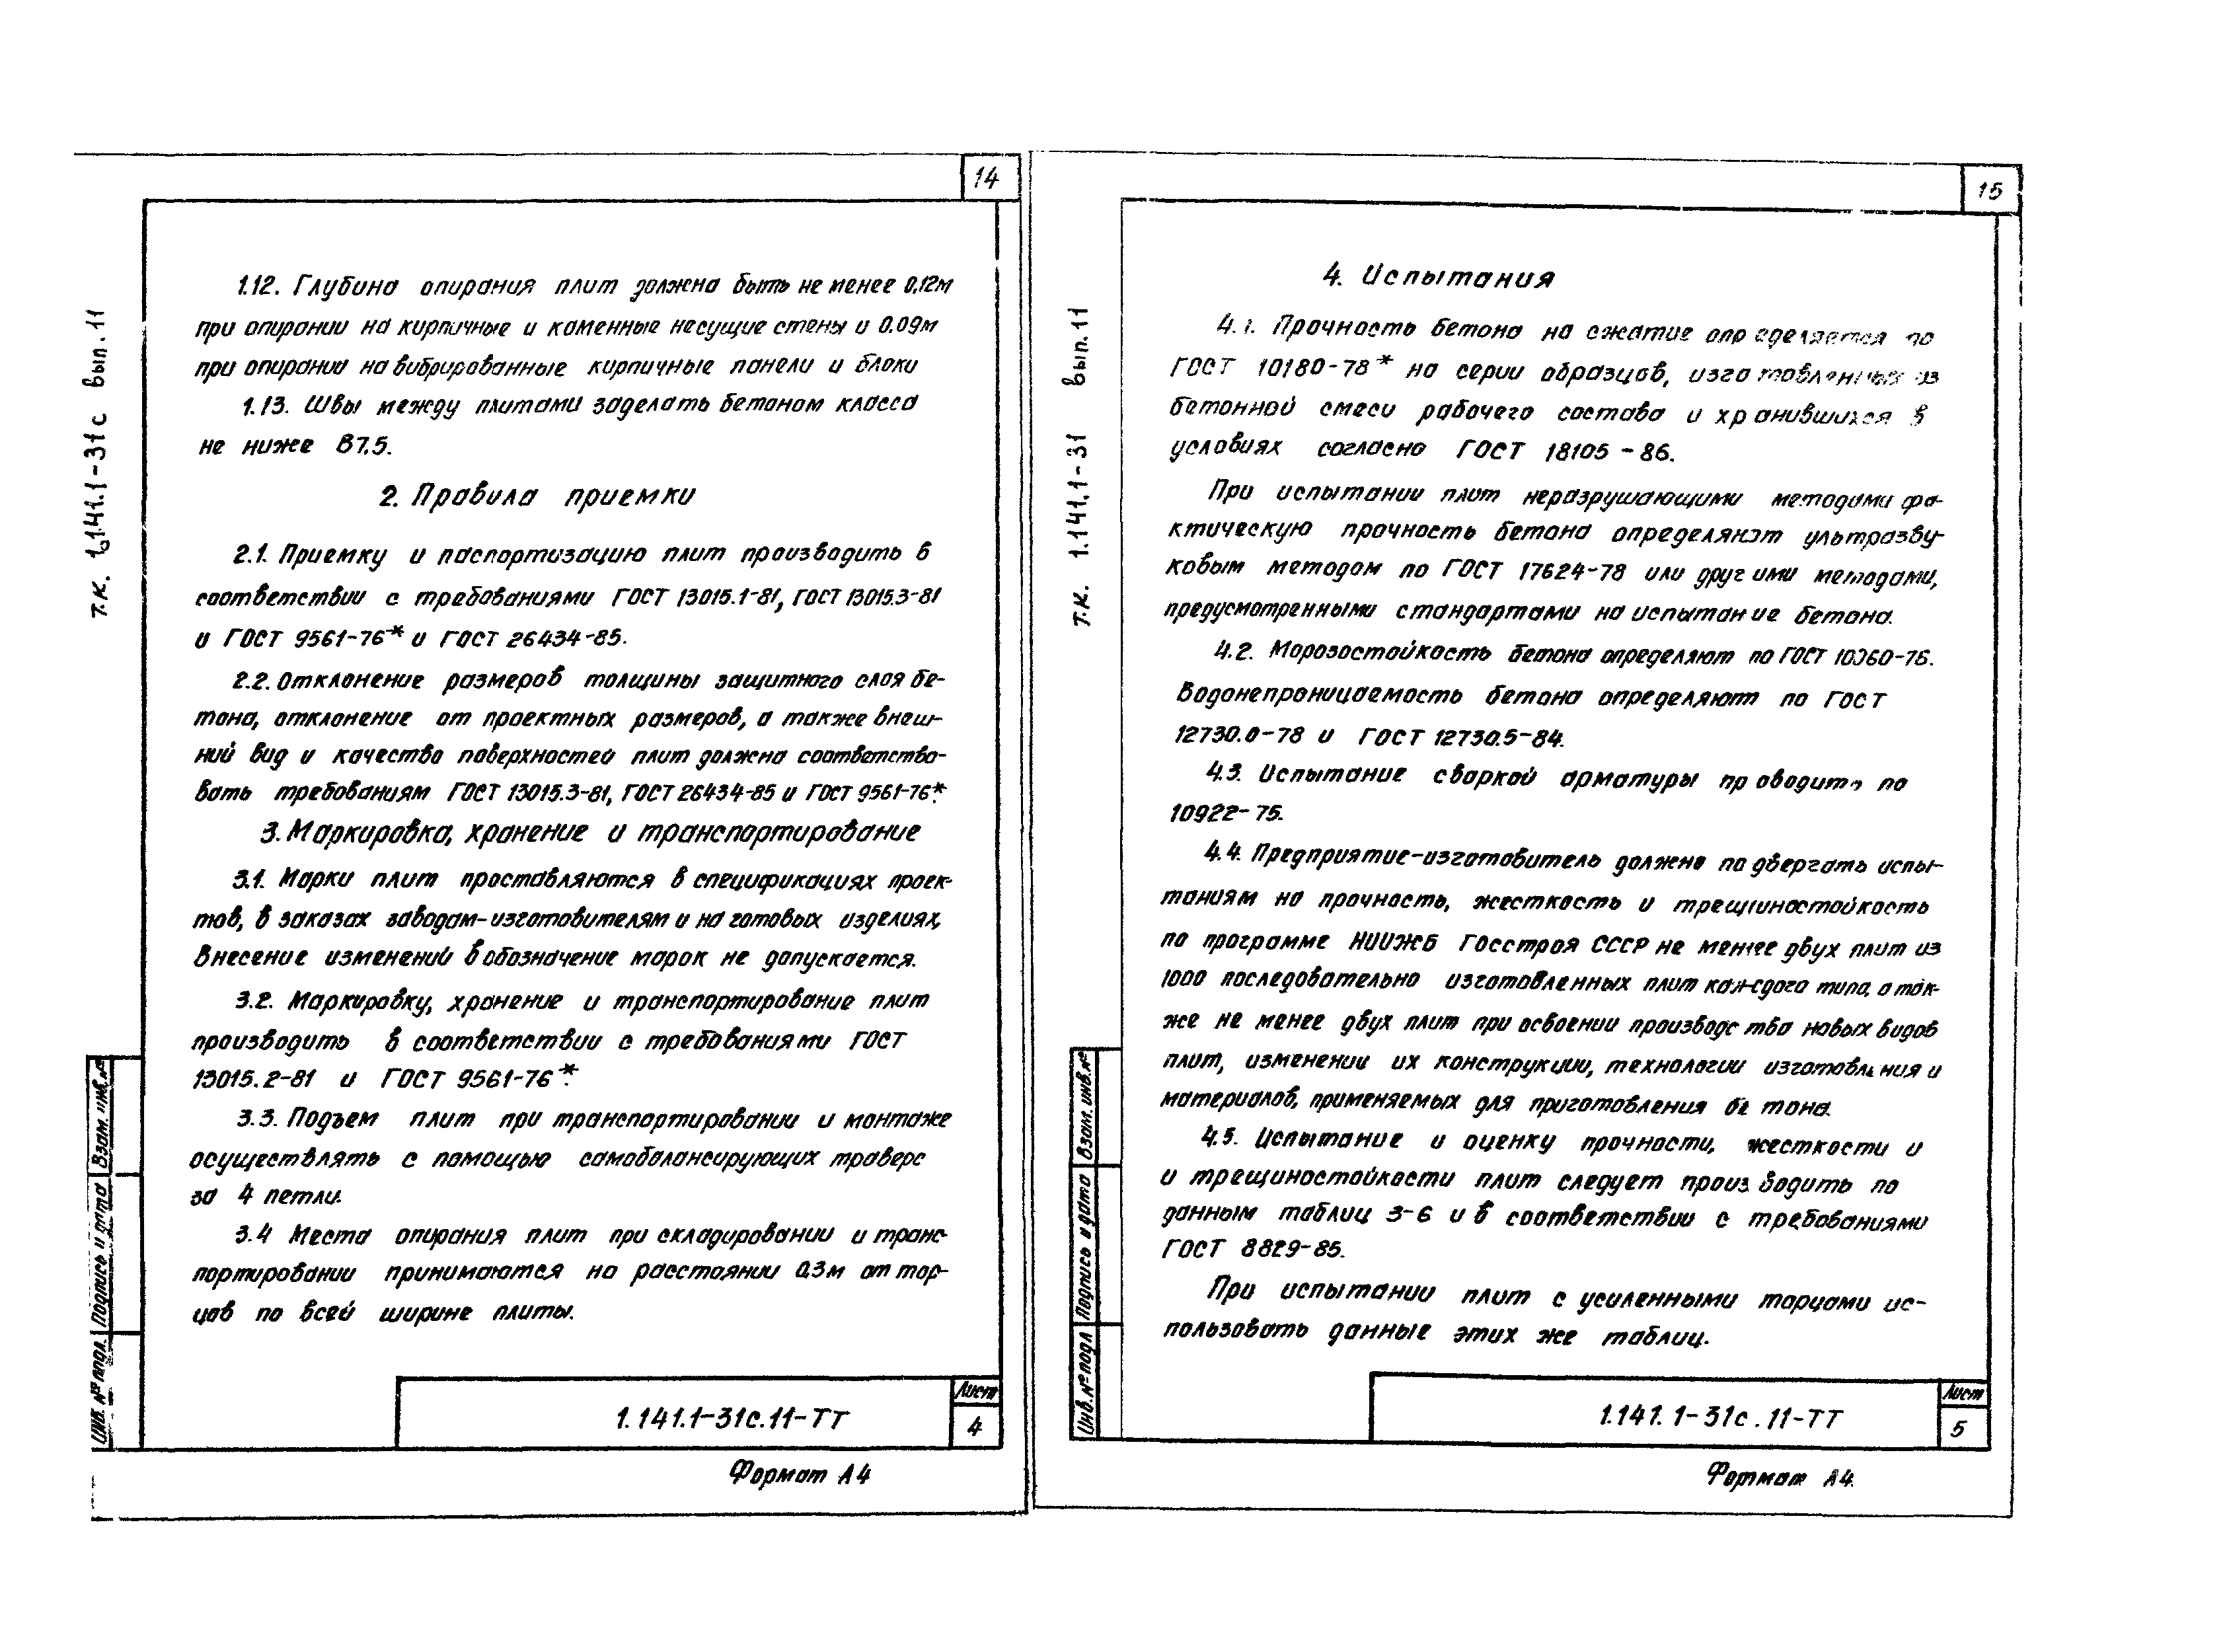 14
т.к. 1.141.1-31с вып.11
1.12. Глубина опирания плит должна быть не менее 0,12м
при опирании на кирпичные и каменные несущие стены и 0.09м
при опирании на вибрированные кирпичные панели и блоки
1.13. Швы между плитами заделать бетоном класса
не ниже В7.5.
2. Правила приемки
2.1. Приемку и паспортизацию плит производить в
соответствии с требованиями ГОСТ 13015.1-81, ГОСТ 13015.3-81
и ГОСТ 9561-76* и ГОСТ 26434-85.
2.2. Отклонение размеров толщины защитного слоя бе-
тона, отклонение от проектных размеров, а также внеш-
ний вид и качество поверхностей плит должна соответство-
вать требованиям ГОСТ 13015.3-81, ГОСТ 26434-85 и ГОСТ 9561-76*.
3. Маркировка, хранение и транспортирование
3.1. Марки плит проставляются в спецификациях проек-
тов, в заказах заводам-изготовителям и на готовых изделиях,
Внесение изменений в обозначение марок не допускается.
3.2. Маркировку, хранение и транспортирование плит
производить в соответствии с требованиями ГОСТ
13015.2-81 и ГОСТ 9561-76*.
3.3. Подъем плит при транспортировании и монтаже
осуществлять с помощью самобалансирующих траверс
за 4 петли.
3.4 Места опирания плит при складировании и транс-
портировании принимаются на расстоянии 0.3м от тор-
цов по всей ширине плиты.
Инв. № подл. Подпись и дата Взам. инв. №
1.141.1-31с.11-ТТ
Лист
4
Формат А4
15
т.к. 1.141.1-31 вып.11
4. Испытания
4.1. Прочность бетона на сжатие определяется по
ГОСТ 10180-78* на серии образцов, изготовленных из
бетонной смеси рабочего состава и хранившихся в
условиях согласно ГОСТ 18105-86.
При испытании плит неразрушающими методами фа-
ктическую прочность бетона определяют ультразву-
ковым методом по ГОСТ 17624-78 или другими методами,
предусмотренными стандартами на испытание бетона.
4.2. Морозостойкость бетона определяют по ГОСТ 10060-76.
Водонепроницаемость бетона определяют по ГОСТ
12730.0-78 и ГОСТ 12730.5-84.
4.3. Испытание сваркой арматуры проводить по
10922-75.
4.4. Предприятие-изготовитель должно подвергать испы-
таниям на прочность, жесткость и трещиностойкость
по программе НИИЖБ Госстроя СССР не менее двух плит из
1000 последовательно изготовленных плит каждого типа, а так-
же не менее двух плит при освоении производства новых видов
плит, изменении их конструкции, технологии изготовления и
материалов, применяемых для приготовления бетона.
4.5. Испытание и оценку прочности, жесткости и
и трещиностойкости плит следует производить по
данным таблиц 3-6 и в соответствии с требованиями
ГОСТ 8829-85.
При испытании плит с усиленными торцами ис-
пользовать данные этих же таблиц.
Инв. № подл Подпись и дата Взам. инв. №
1.141.1-31с.11-ТТ
Лист
5
Формат А4.